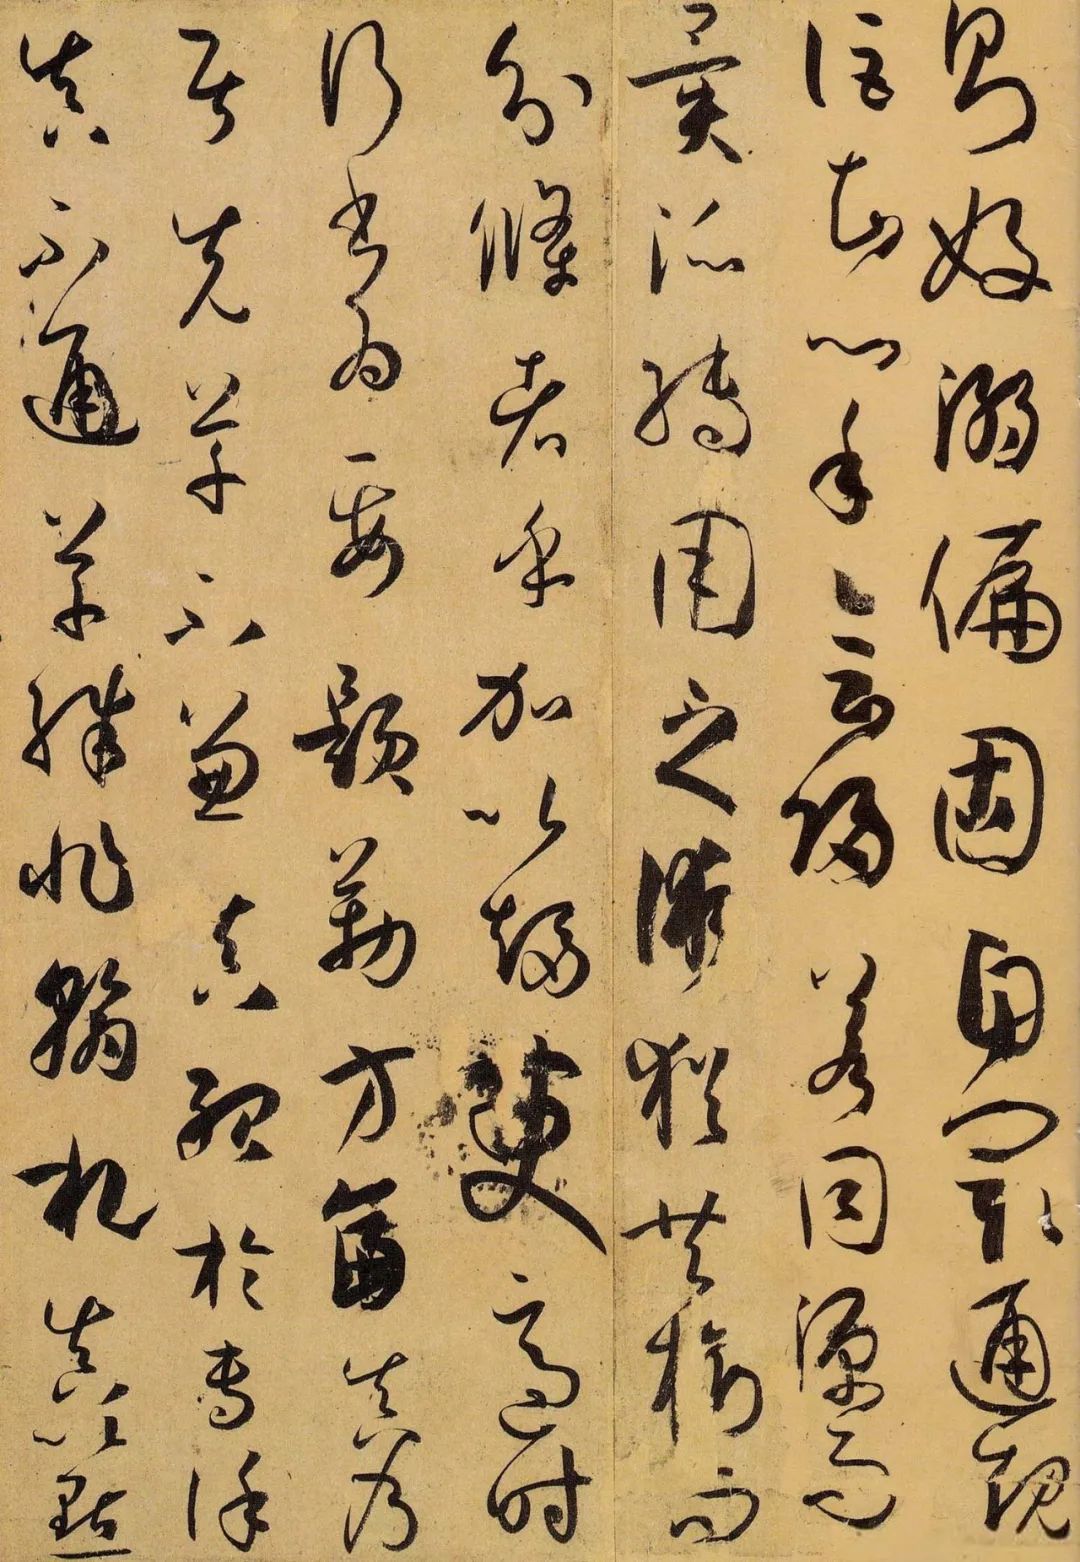 則好溺偏固自閡通規
詎知心手會歸若同源而
異派轉用之術猶共樹而
分條者乎加以趨變適時
行書為要題勒方畐真乃
居先草不兼真殆於專謹
真不通草殊非翰札真以點